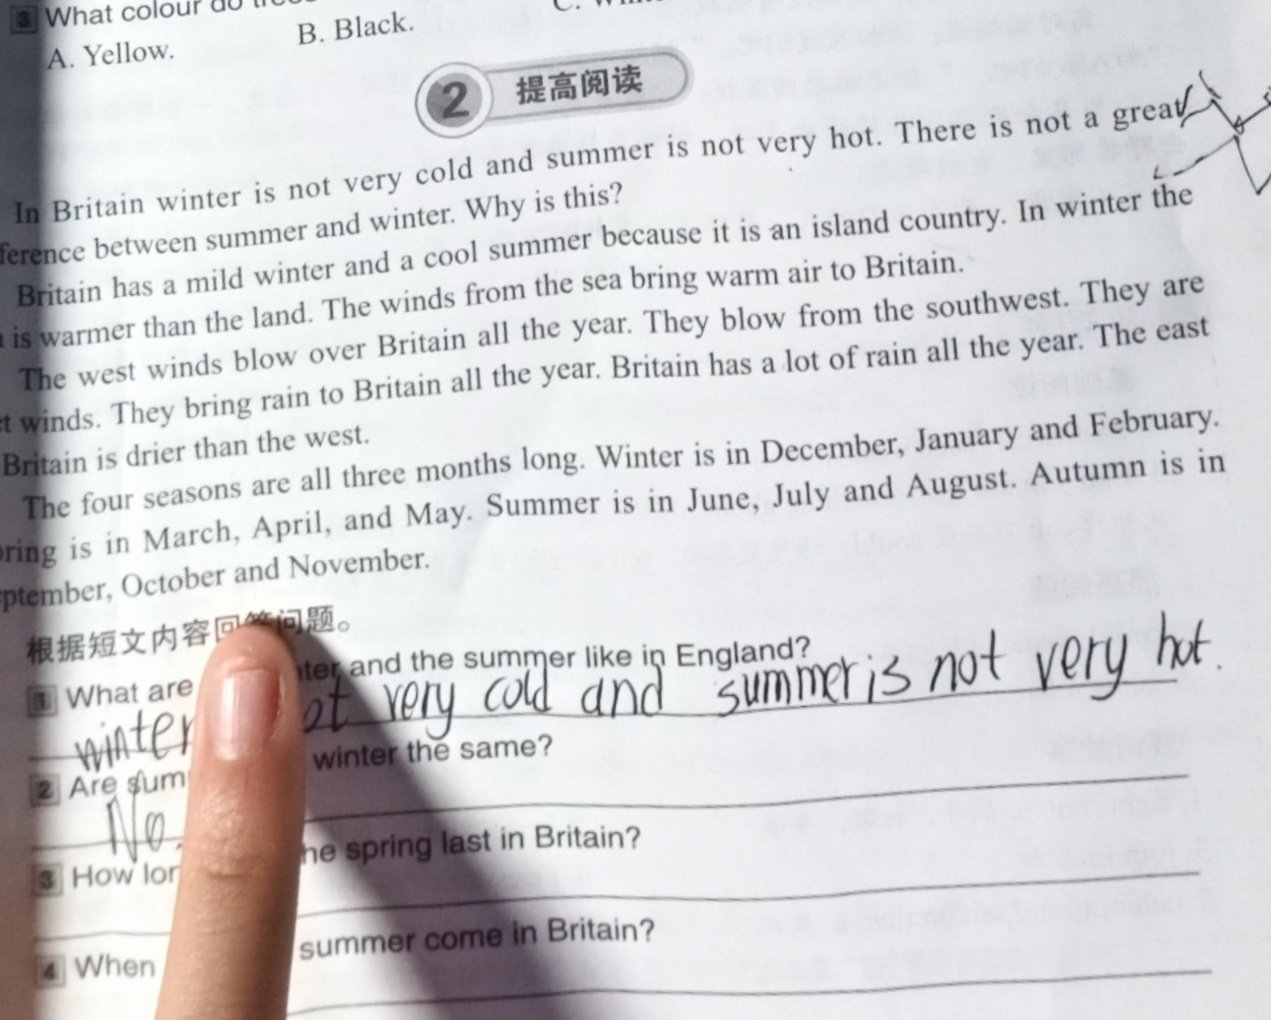 3 What colour do
A. Yellow. B. Black. C.
2 提高阅读
In Britain winter is not very cold and summer is not very hot. There is not a great
ference between summer and winter. Why is this?
Britain has a mild winter and a cool summer because it is an island country. In winter the
is warmer than the land. The winds from the sea bring warm air to Britain.
The west winds blow over Britain all the year. They blow from the southwest. They are
t winds. They bring rain to Britain all the year. Britain has a lot of rain all the year. The east
Britain is drier than the west.
The four seasons are all three months long. Winter is in December, January and February.
ring is in March, April, and May. Summer is in June, July and August. Autumn is in
ptember, October and November.
根据短文内容回答问题。
1 What are ter and the summer like in England?
winter ot very cold and summer is not very hot.
2 Are sum winter the same?
No.
3 How lon he spring last in Britain?
4 When summer come in Britain?